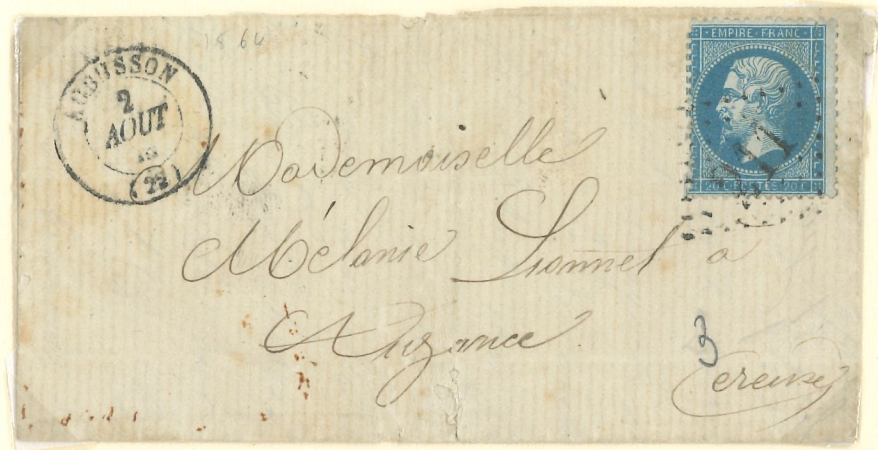 1864
AUBUSSON
2
AOUT
(22)
EMPIRE FRANC
20 CENTIMES 20
Mademoiselle
Mélanie Lionnet a
Auzance
3
Creuse